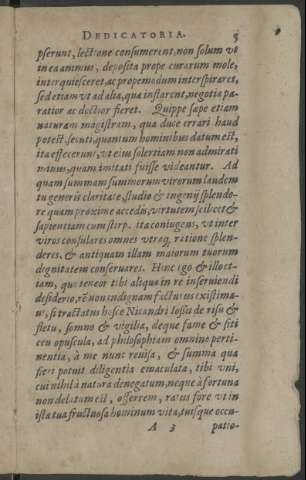 DEDICATORIA. 5
pserunt, lectione consumerent, non solum vt
in ea animus, deposita prope curarum mole,
interquiesceret, ac propemodum interspiraret,
sed etiam vt ad alia, quæ instarent, negotia pa-
ratior ac doctior fieret. Quippe sæpe etiam
naturam magistram, qua duce errari haud
potest, secuti, quantum hominibus datum est,
ita effecerunt, vt eius solertiam non admirati
tantum, quam imitati fuisse videantur. Ad
quam summam summorum virorum laudem
tu generis claritate, studio & ingenij splendo-
re quam proxime accedis, virtutem scilicet &
sapientiam cum stirpe ita coniugens, vt inter
viros consulares omnes vtraq; ratione splen-
deres, & antiquam illam maiorum tuorum
dignitatem conseruares. Hinc ego & illectus
tam, qui teneor tibi aliqua in re inseruiendi
desiderio, rē non indignam facturus existima-
ui, si tractatus hosce Nicandri Iossij de risu &
fletu, somno & vigilia, deque fame & siti
ceu opuscula, ad philosophiam omnino perti-
nentia, à me nunc reuisa, & summa qua
fieri potuit diligentia emaculata, tibi vni,
cui nihil à natura denegatum, neque à fortuna
non delatum est, offerrem, ratus fore vt in
ista tua fructuosa hominum vita, tuisque occu-
A 3 patio-